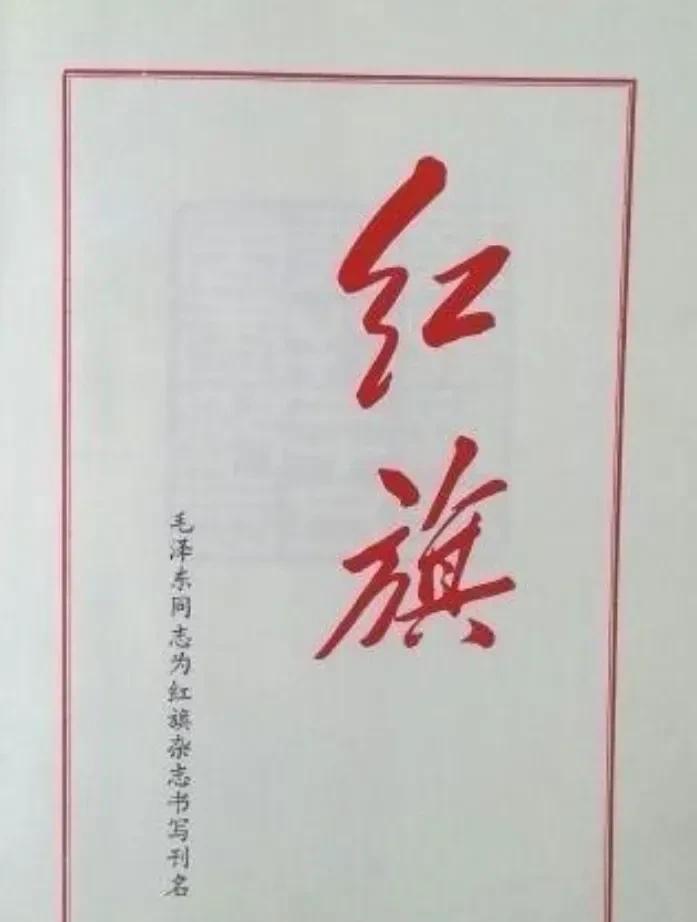 红旗
毛泽东同志为红旗杂志书写刊名